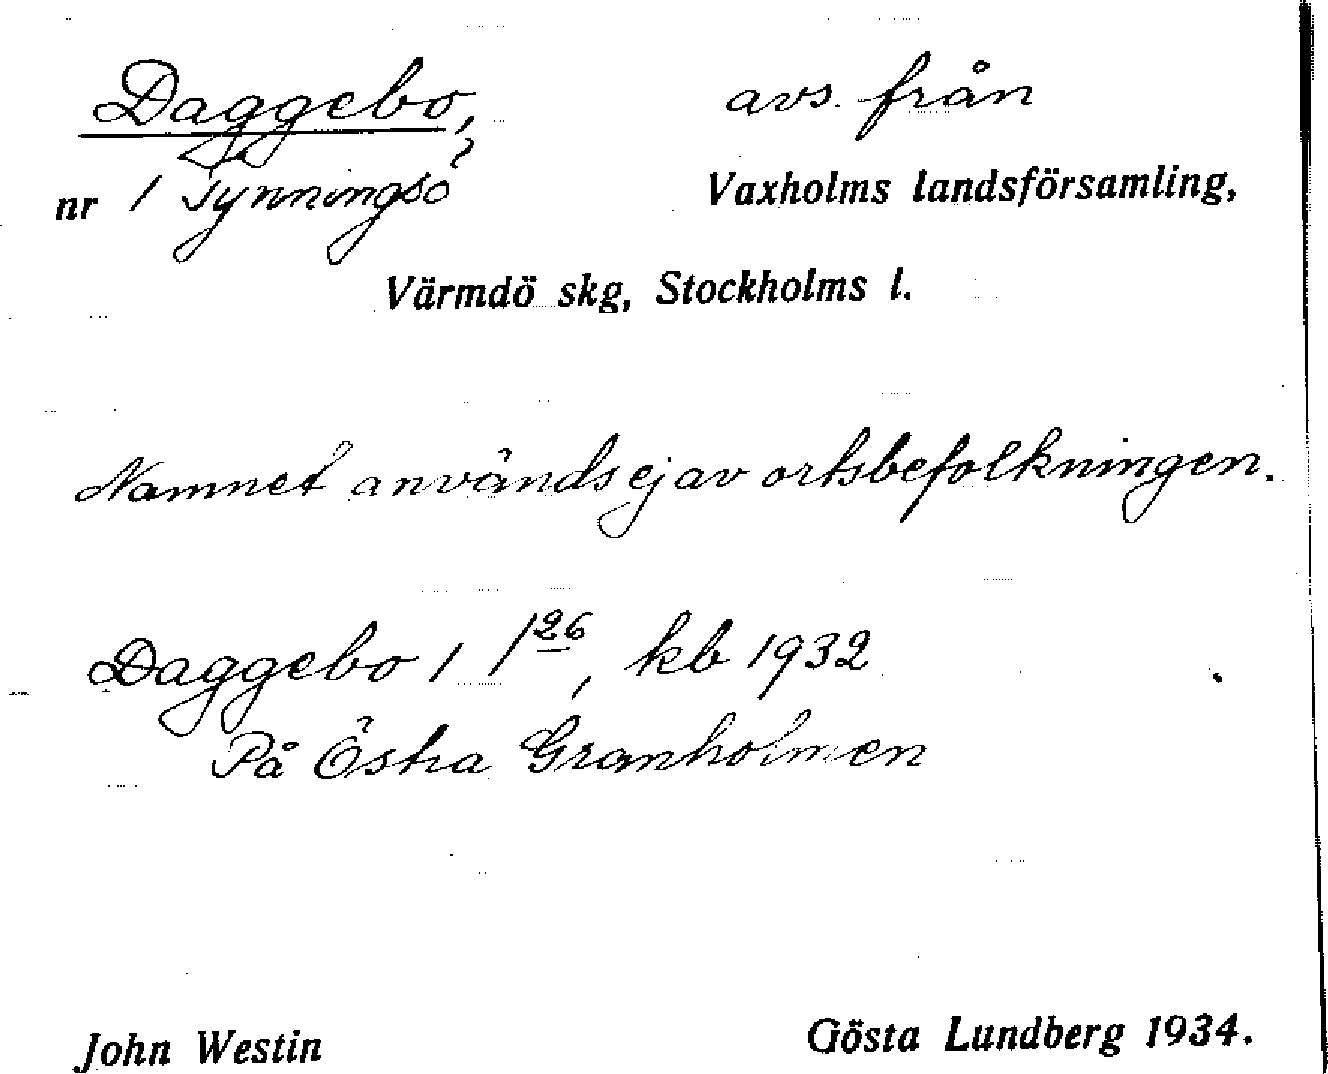 Daggebo, avs. från
nr 1 Tynningsö Vaxholms landsförsamling,
Värmdö skg, Stockholms l.
Namnet används ej av ortsbefolkningen.
Daggebo 1 1²⁶, kb 1932
På Östra Granholmen
John Westin Gösta Lundberg 1934.